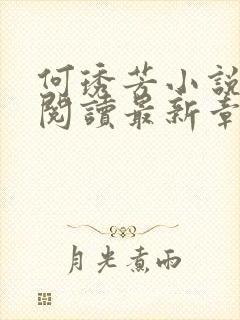 何琇芳小說
閱讀最新章
月光煮雨